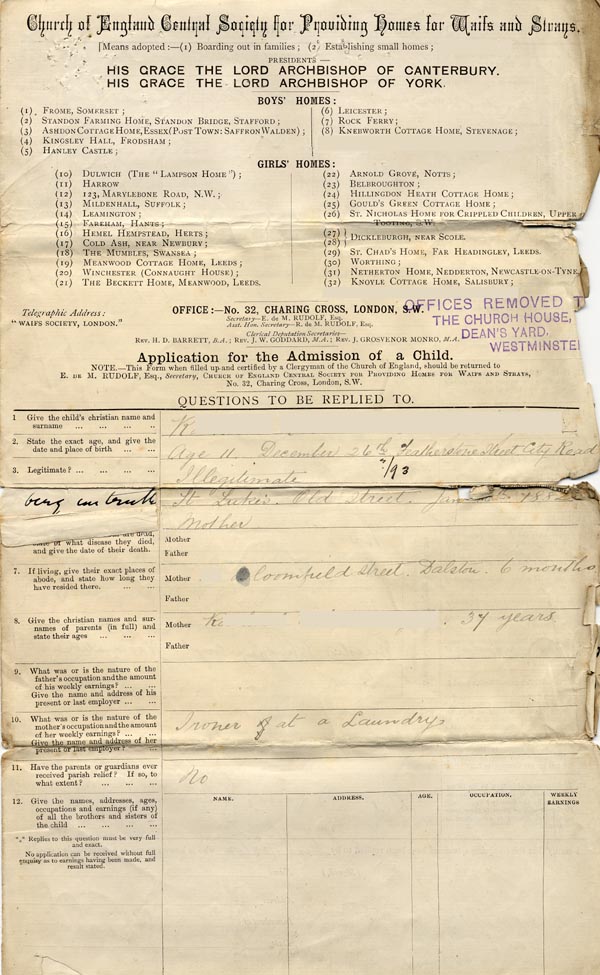 Church of England Central Society for Providing Homes for Waifs and Strays.
[Means adopted:—(1) Boarding out in families; (2) Establishing small homes;
PRESIDENTS—
HIS GRACE THE LORD ARCHBISHOP OF CANTERBURY.
HIS GRACE THE LORD ARCHBISHOP OF YORK.
BOYS' HOMES:
(1) FROME, SOMERSET;
(2) STANDON FARMING HOME, STANDON BRIDGE, STAFFORD;
(3) ASHDON COTTAGE HOME, ESSEX (POST TOWN: SAFFRON WALDEN);
(4) KINGSLEY HALL, FRODSHAM;
(5) HANLEY CASTLE;
(6) LEICESTER;
(7) ROCK FERRY;
(8) KNEBWORTH COTTAGE HOME, STEVENAGE;
GIRLS' HOMES:
(10) DULWICH (THE "LAMPSON HOME");
(11) HARROW
(12) 123, MARYLEBONE ROAD, N.W.;
(13) MILDENHALL, SUFFOLK;
(14) LEAMINGTON;
(15) FAREHAM, HANTS;
(16) HEMEL HEMPSTEAD, HERTS;
(17) COLD ASH, NEAR NEWBURY;
(18) THE MUMBLES, SWANSEA;
(19) MEANWOOD COTTAGE HOME, LEEDS;
(20) WINCHESTER (CONNAUGHT HOUSE);
(21) THE BECKETT HOME, MEANWOOD, LEEDS.
(22) ARNOLD GROVE, NOTTS;
(23) BELBROUGHTON;
(24) HILLINGDON HEATH COTTAGE HOME;
(25) GOULD'S GREEN COTTAGE HOME;
(26) ST. NICHOLAS HOME FOR CRIPPLED CHILDREN, UPPER
TOOTING, S.W.
(27)
(28) DICKLEBURGH, NEAR SCOLE.
(29) ST. CHAD'S HOME, FAR HEADINGLEY, LEEDS.
(30) WORTHING;
(31) NETHERTON HOME, NEDDERTON, NEWCASTLE-ON-TYNE,
(32) KNOYLE COTTAGE HOME, SALISBURY;
Telegraphic Address:
"WAIFS SOCIETY, LONDON."
OFFICE:—No. 32, CHARING CROSS, LONDON, S.W.
Secretary—E. de M. RUDOLF, Esq.
Asst. Hon. Secretary—R. de M. RUDOLF, Esq.
Clerical Deputation Secretaries—
REV. H. D. BARRETT, B.A.; REV. J. W. GODDARD, M.A.; REV. J. GROSVENOR MONRO, M.A.
OFFICES REMOVED T
THE CHURCH HOUSE,
DEAN'S YARD,
WESTMINSTE
Application for the Admission of a Child.
NOTE.—This Form when filled up and certified by a Clergyman of the Church of England, should be returned to
E. DE M. RUDOLF, ESQ., Secretary, CHURCH OF ENGLAND CENTRAL SOCIETY FOR PROVIDING HOMES FOR WAIFS AND STRAYS,
No. 32, Charing Cross, London, S.W.
QUESTIONS TO BE REPLIED TO.
1 Give the child's christian name and
surname ... ... ... ...
K
2. State the exact age, and give the
date and place of birth ... ...
Age 11. December 26th Featherstone Street City Road
3. Legitimate? ... ... ... ...
Illegitimate
7/93
St Luke's. Old Street.
Mother
are dead,
state of what disease they died,
and give the date of their death.
Mother
Father
7. If living, give their exact places of
abode, and state how long they
have resided there. ... ...
Mother
loomfield Street. Dalston. 6 months
Father
8. Give the christian names and sur-
names of parents (in full) and
state their ages ... ... ...
Mother
K
37 years
Father
9. What was or is the nature of the
father's occupation and the amount
of his weekly earnings? ... ...
Give the name and address of his
present or last employer ... ...
10. What was or is the nature of the
mother's occupation and the amount
of her weekly earnings? ... ...
Give the name and address of her
present or last employer? ... ...
Ironer at a Laundry
11. Have the parents or guardians ever
received parish relief? If so, to
what extent? ... ... ...
No
12. Give the names, addresses, ages,
occupations and earnings (if any)
of all the brothers and sisters of
the child ... ... ... ...
NAME. ADDRESS. AGE. OCCUPATION. WEEKLY
EARNINGS
Replies to this question must be very full
and exact.
No application can be received without full
enquiry as to earnings having been made, and
result stated.